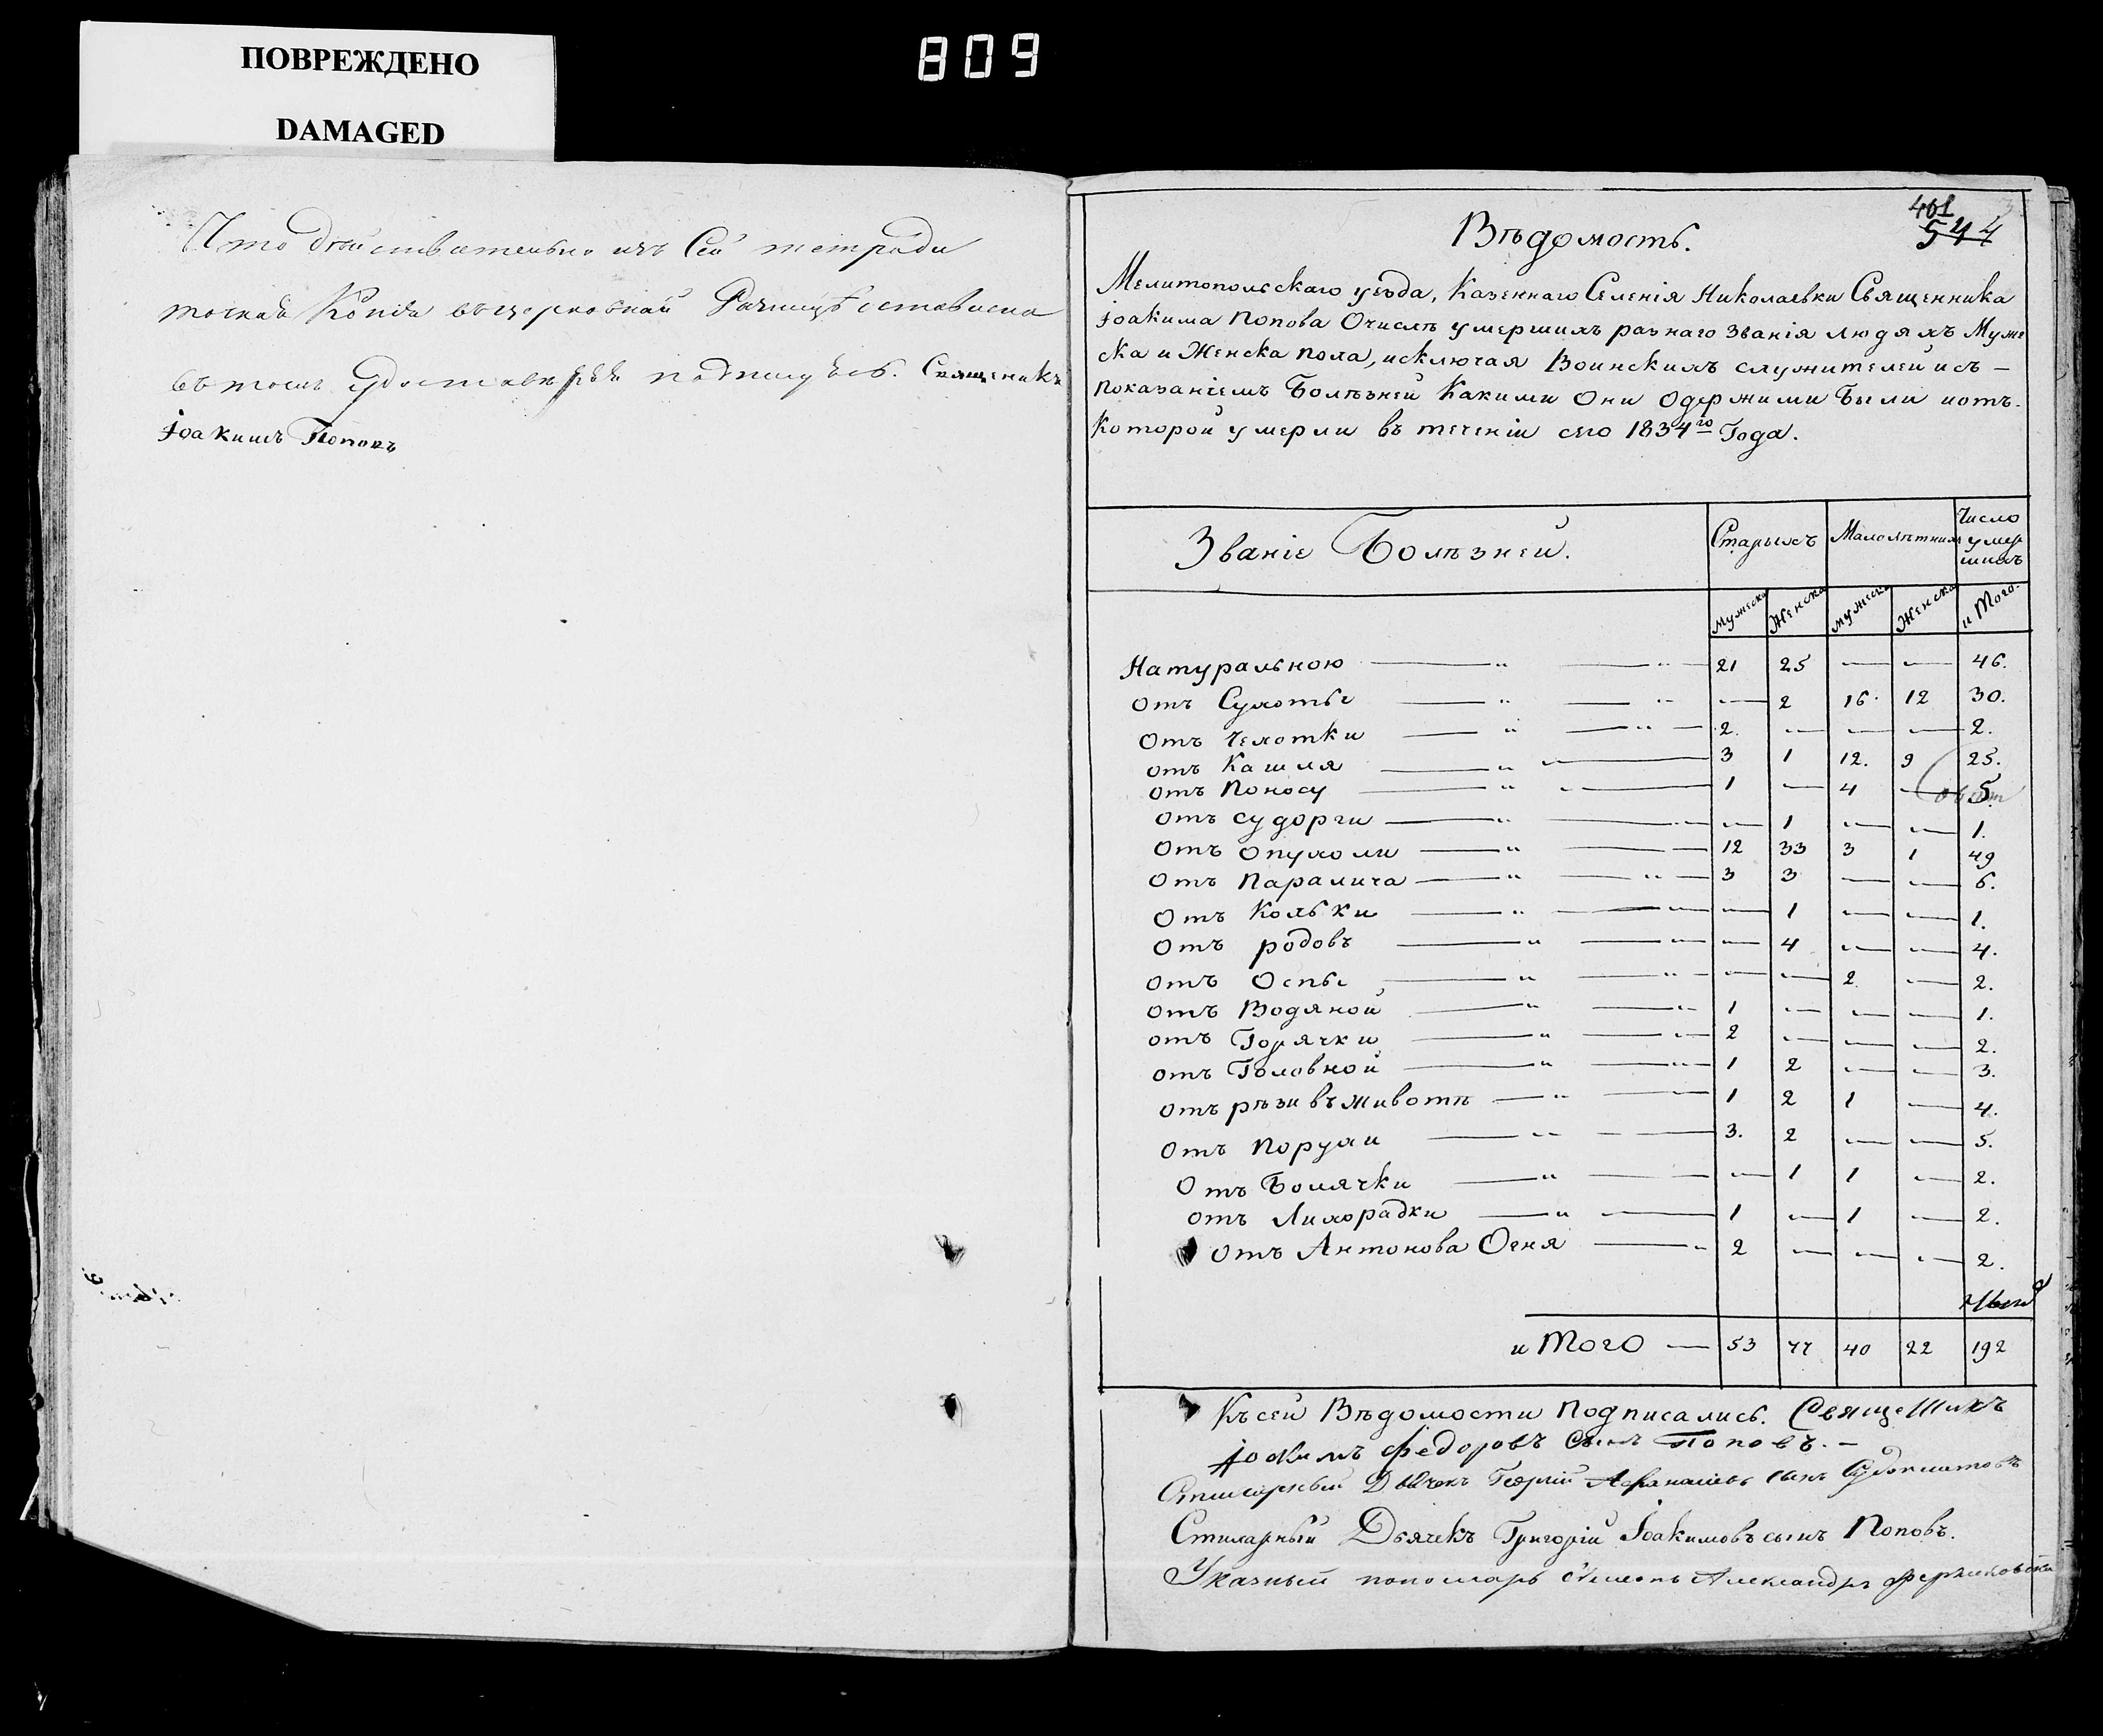 ПОВРЕЖДЕНО
DAMAGED
809
Что действительно изъ Сей тетради
точная Копія въ церковной Ризницѣ оставлена
въ томъ удостовѣряя подписуюсь. Священикъ
Іоакимъ Поповъ
401
544
Вѣдомость.
Мелитопольскаго уезда, Казеннаго Селенія Николаевки Священника
Іоакима Попова Очислѣ умершихъ разнаго званія людяхъ Муже
ска и Женска пола, исключая Воинскихъ служителей исъ —
показаніемъ Болѣзней Какими Они Одержими Были иотъ
Которой умерли въ теченіи сего 1834го Года.
Званіе Болѣзней. Старыхъ Малолѣтнихъ Число умер шихъ
мужеска Женска мужеска Женска и Того.
Натуральною — " — " — 21 25 — — 46.
Отъ Сухоты — " — " — — 2 16. 12 30.
Отъ Чехотки — " — " — 2. — — — 2.
отъ Кашля — " — 3 1 12. 9 25.
отъ Поносу — " — 1 — 4 — 5.
отъ судорги — " — — 1 — — 1.
Отъ Опухоли — " — 12 33 3 1 49
Отъ Паралича — " — " — 3 3 — — 6.
Отъ Кольки — " — — 1 — — 1.
Отъ родовъ — " — — 4 — — 4.
отъ Оспы — " — " — — — 2 — 2.
отъ Водяной — " — 1 — — — 1.
отъ Горячки — " — 2 — — — 2.
отъ Головной — " — 1 2 — — 3.
отъ рѣзи въ животѣ — " — 1 2 1 — 4.
Отъ Порухи — " — 3. 2 — — 5.
Отъ Болячки — " — — 1 1 — 2.
отъ Лихорадки — " — 1 — 1 — 2.
отъ Антонова Огня — " 2 — — — 2.
и Того — 53 77 40 22 192
Къ сей Вѣдомости Подписались. Священникъ
Іоакимъ Федоровъ сынъ Поповъ. —
Стихарный Дьячекъ Георгій Афанасіевъ сынъ
Стихарный Дьячекъ Григорій Іоакимовъ сынъ Поповъ.
Указный пономарь Симеонъ Александръ